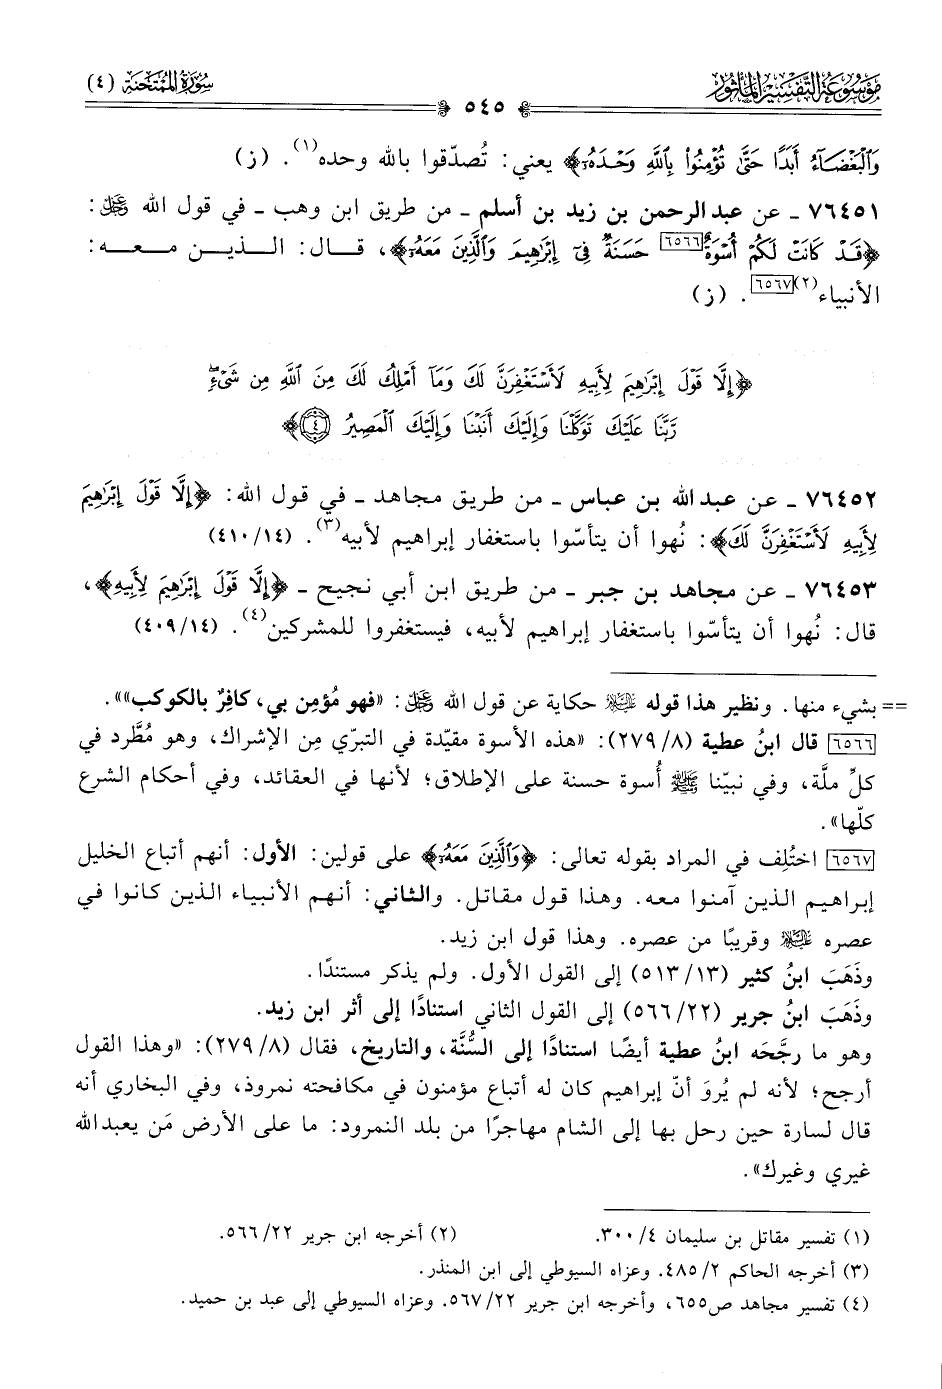 سُورَةُ المُمْتَحنَة (٤)
٥٤٥
مَوْسُوعَة التَّفْسِير المَأْثُور
وَٱلْبَغْضَآءُ أَبَدًا حَتَّىٰ تُؤْمِنُواْ بِٱللَّهِ وَحْدَهُۥٓ﴾ يعني: تُصدّقوا بالله وحده(١). (ز)
٧٦٤٥١ ـ عن عبد الرحمن بن زيد بن أسلم ـ من طريق ابن وهب ـ في قول الله عز وجل:
﴿قَدْ كَانَتْ لَكُمْ أُسْوَةٌ[٦٥٦٦] حَسَنَةٌ فِىٓ إِبْرَٰهِيمَ وَٱلَّذِينَ مَعَهُۥٓ﴾، قال: الذين معه:
الأنبياء(٢)[٦٥٦٧]. (ز)
﴿إِلَّا قَوْلَ إِبْرَٰهِيمَ لِأَبِيهِ لَأَسْتَغْفِرَنَّ لَكَ وَمَآ أَمْلِكُ لَكَ مِنَ ٱللَّهِ مِن شَىْءٍۖ
رَّبَّنَا عَلَيْكَ تَوَكَّلْنَا وَإِلَيْكَ أَنَبْنَا وَإِلَيْكَ ٱلْمَصِيرُ ٤﴾
٧٦٤٥٢ ـ عن عبد الله بن عباس ـ من طريق مجاهد ـ في قول الله: ﴿إِلَّا قَوْلَ إِبْرَٰهِيمَ
لِأَبِيهِ لَأَسْتَغْفِرَنَّ لَكَ﴾: نُهوا أن يتأسّوا باستغفار إبراهيم لأبيه(٣). (٤١٠/١٤)
٧٦٤٥٣ ـ عن مجاهد بن جبر ـ من طريق ابن أبي نجيح ـ ﴿إِلَّا قَوْلَ إِبْرَٰهِيمَ لِأَبِيهِ﴾،
قال: نُهوا أن يتأسّوا باستغفار إبراهيم لأبيه، فيستغفروا للمشركين(٤). (٤٠٩/١٤)
== بشيء منها. ونظير هذا قوله عليه السلام حكاية عن قول الله عز وجل: «فهو مُؤمِن بي، كافِرٌ بالكوكب»».
[٦٥٦٦] قال ابنُ عطية (٢٧٩/٨): «هذه الأسوة مقيّدة في التبرّي مِن الإشراك، وهو مُطَّرد في
كلِّ ملَّة، وفي نبيّنا ﷺ أُسوة حسنة على الإطلاق؛ لأنها في العقائد، وفي أحكام الشرع
كلّها».
[٦٥٦٧] اختُلِف في المراد بقوله تعالى: ﴿وَٱلَّذِينَ مَعَهُۥٓ﴾ على قولين: الأول: أنهم أتباع الخليل
إبراهيم الذين آمنوا معه. وهذا قول مقاتل. والثاني: أنهم الأنبياء الذين كانوا في
عصره عليه السلام وقريبًا من عصره. وهذا قول ابن زيد.
وذَهَبَ ابنُ كثير (٥١٣/١٣) إلى القول الأول. ولم يذكر مستندًا.
وذَهَبَ ابنُ جرير (٥٦٦/٢٢) إلى القول الثاني استنادًا إلى أثر ابن زيد.
وهو ما رجَّحَه ابنُ عطية أيضًا استنادًا إلى السُّنَّة، والتاريخ، فقال (٢٧٩/٨): «وهذا القول
أرجح؛ لأنه لم يُروَ أنّ إبراهيم كان له أتباع مؤمنون في مكافحته نمروذ، وفي البخاري أنه
قال لسارة حين رحل بها إلى الشام مهاجرًا من بلد النمرود: ما على الأرض مَن يعبد الله
غيري وغيرك».
(١) تفسير مقاتل بن سليمان ٣٠٠/٤. (٢) أخرجه ابن جرير ٥٦٦/٢٢.
(٣) أخرجه الحاكم ٤٨٥/٢. وعزاه السيوطي إلى ابن المنذر.
(٤) تفسير مجاهد ص٦٥٥، وأخرجه ابن جرير ٥٦٧/٢٢. وعزاه السيوطي إلى عبد بن حميد.